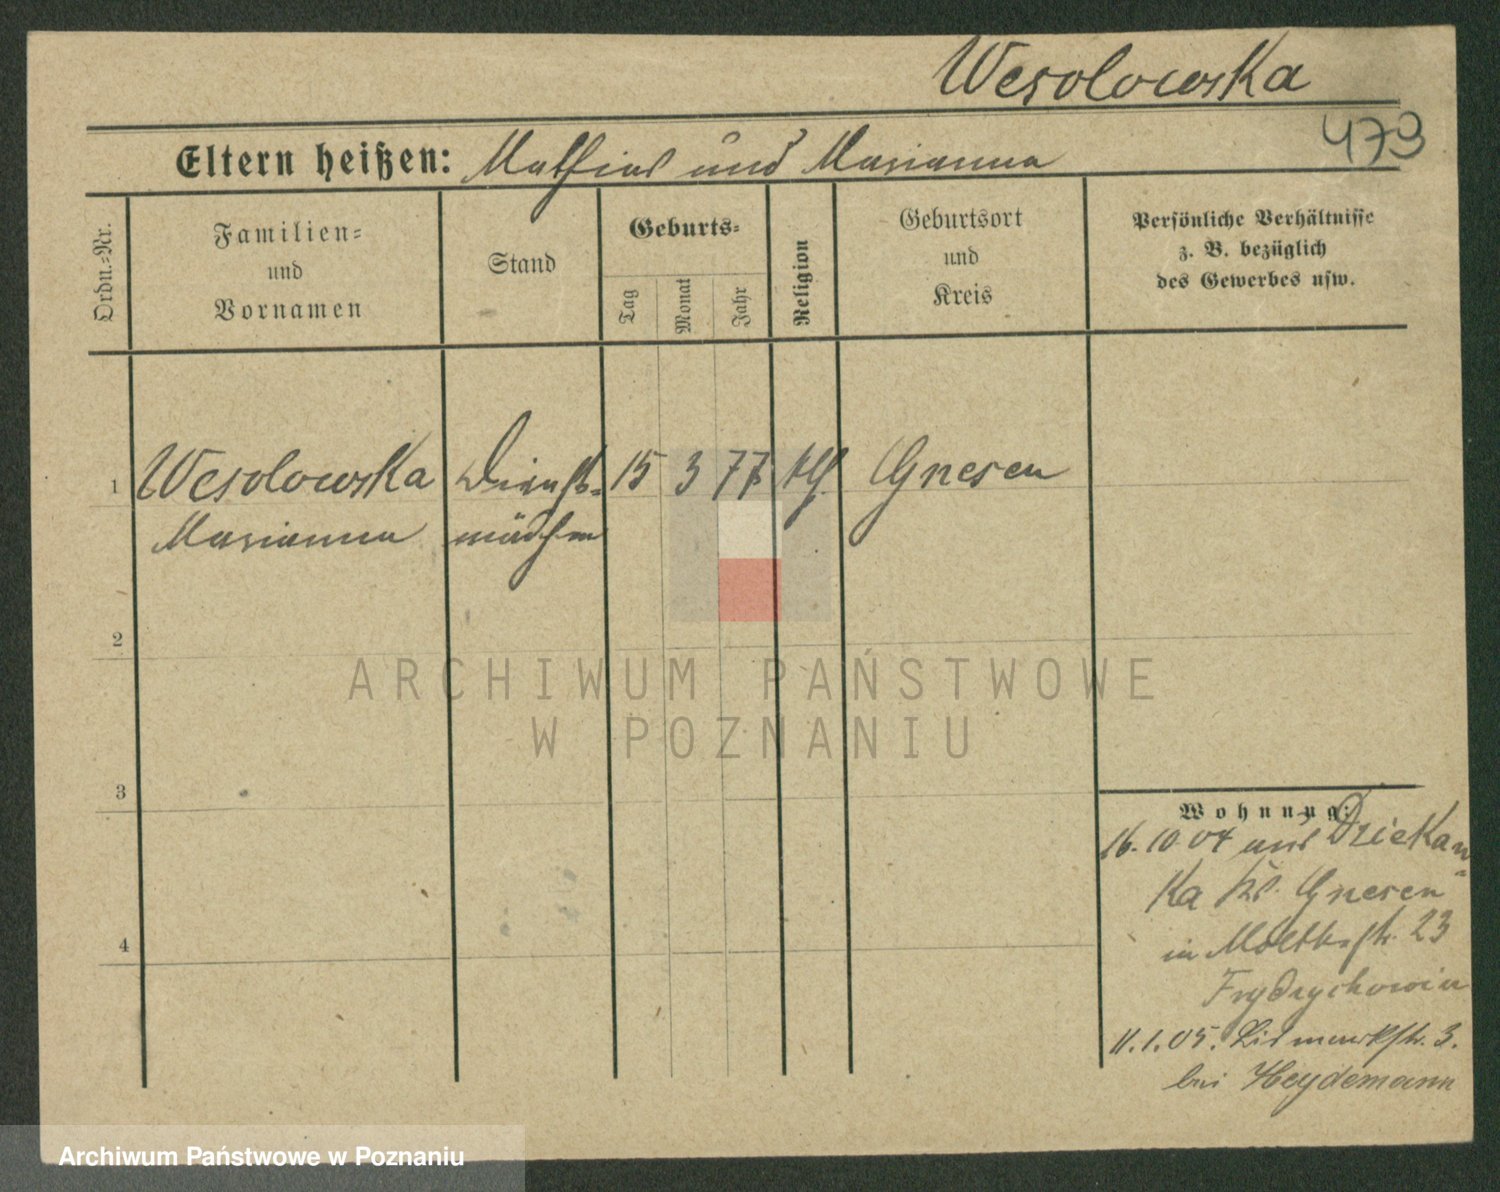 Wesolowska
473
Eltern heißen: Mathias und Marianna
Ordn.-Nr.
Familien- und Vornamen
Stand
Geburts-
Tag
Monat
Jahr
Religion
Geburtsort und Kreis
Persönliche Verhältnisse
z. B. bezüglich
des Gewerbes usw.
1 Wesolowska Dienst- 15 3 77 kth. Gnesen
Marianna mädchen
2
3
4
Wohnung:
16.10.04 aus Dziekan-
ka Kr. Gnesen
in Moltkestr. 23
Frydrychowin
11.1.05. Bismarckstr. 3.
bei Heydemann
ARCHIWUM PAŃSTWOWE
W POZNANIU
Archiwum Państwowe w Poznaniu